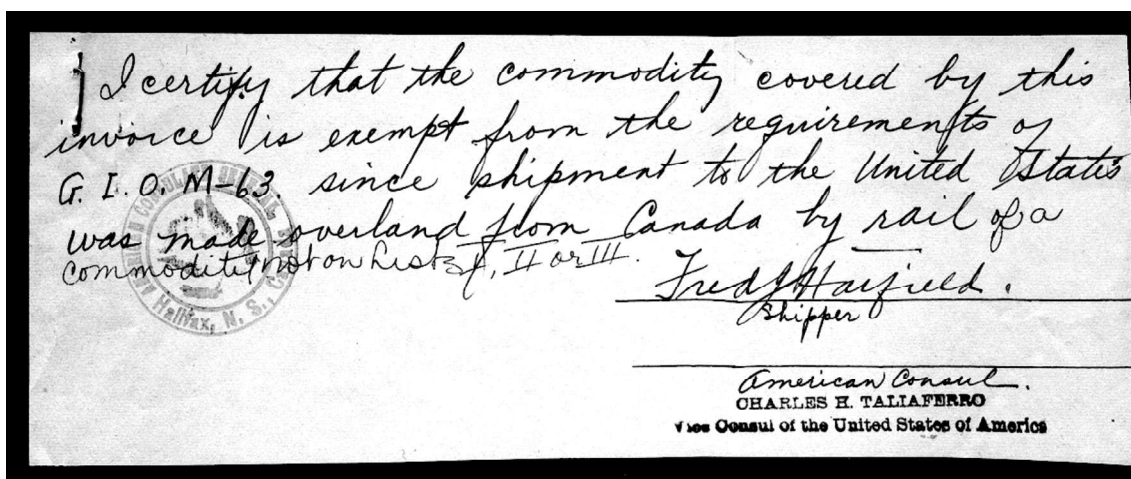 I certify that the commodity covered by this
invoice is exempt from the requirements of
G. I. O. M-63. since shipment to the United States
was made overland from Canada by rail of a
commodity not on Lists I, II or III.
Fred J Hatfield.
Shipper
American Consul.
CHARLES H. TALIAFERRO
Vice Consul of the United States of America
Halifax, N. S.,